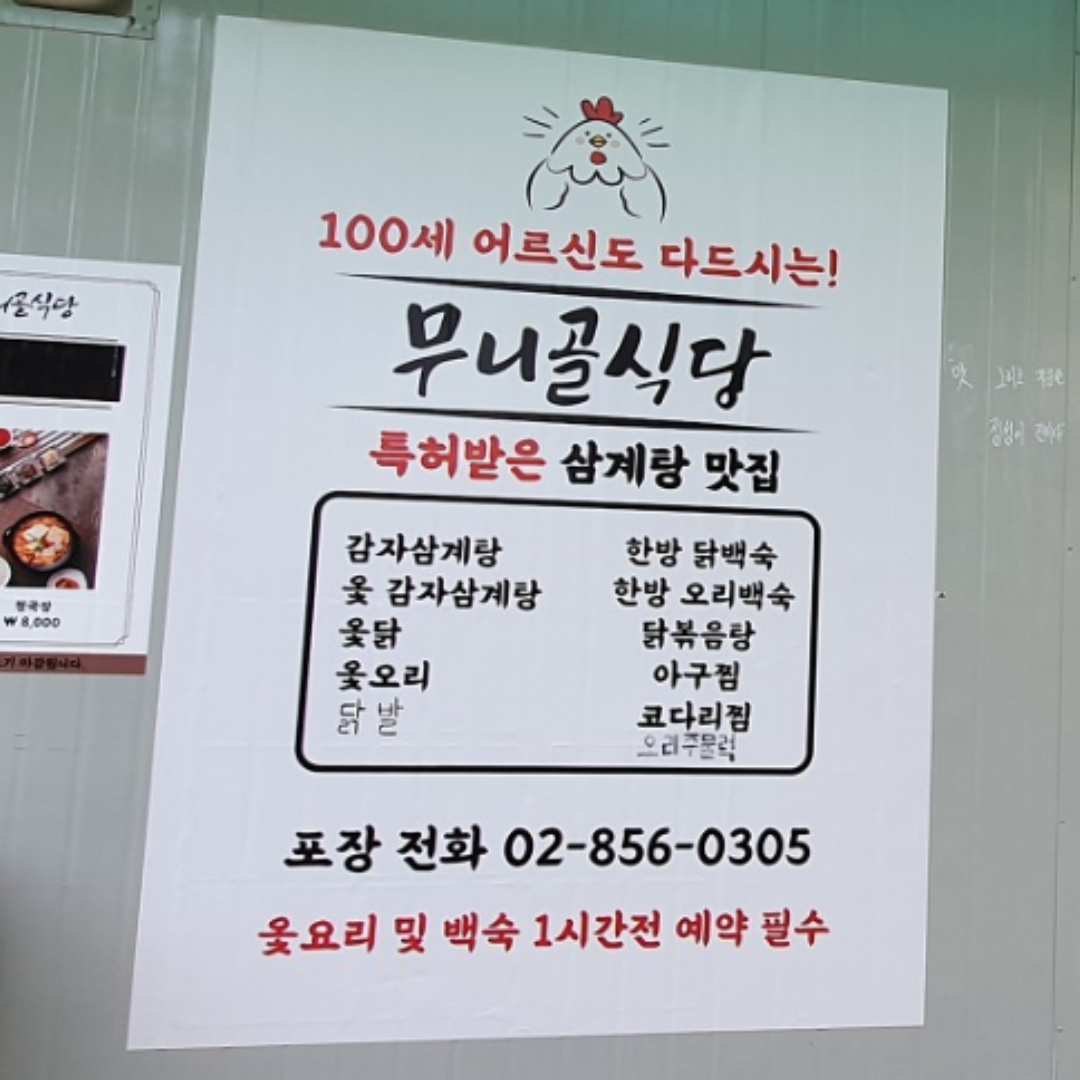 100세 어르신도 다드시는!
무니골식당
특허받은 삼계탕 맛집
감자삼계탕
옻 감자삼계탕
옻닭
옻오리
닭 발
한방 닭백숙
한방 오리백숙
닭볶음탕
아구찜
코다리찜
오리주물럭
포장 전화 02-856-0305
옻요리 및 백숙 1시간전 예약 필수
니골식당
청국장
₩ 8,000
기 마감됩니다.
맛